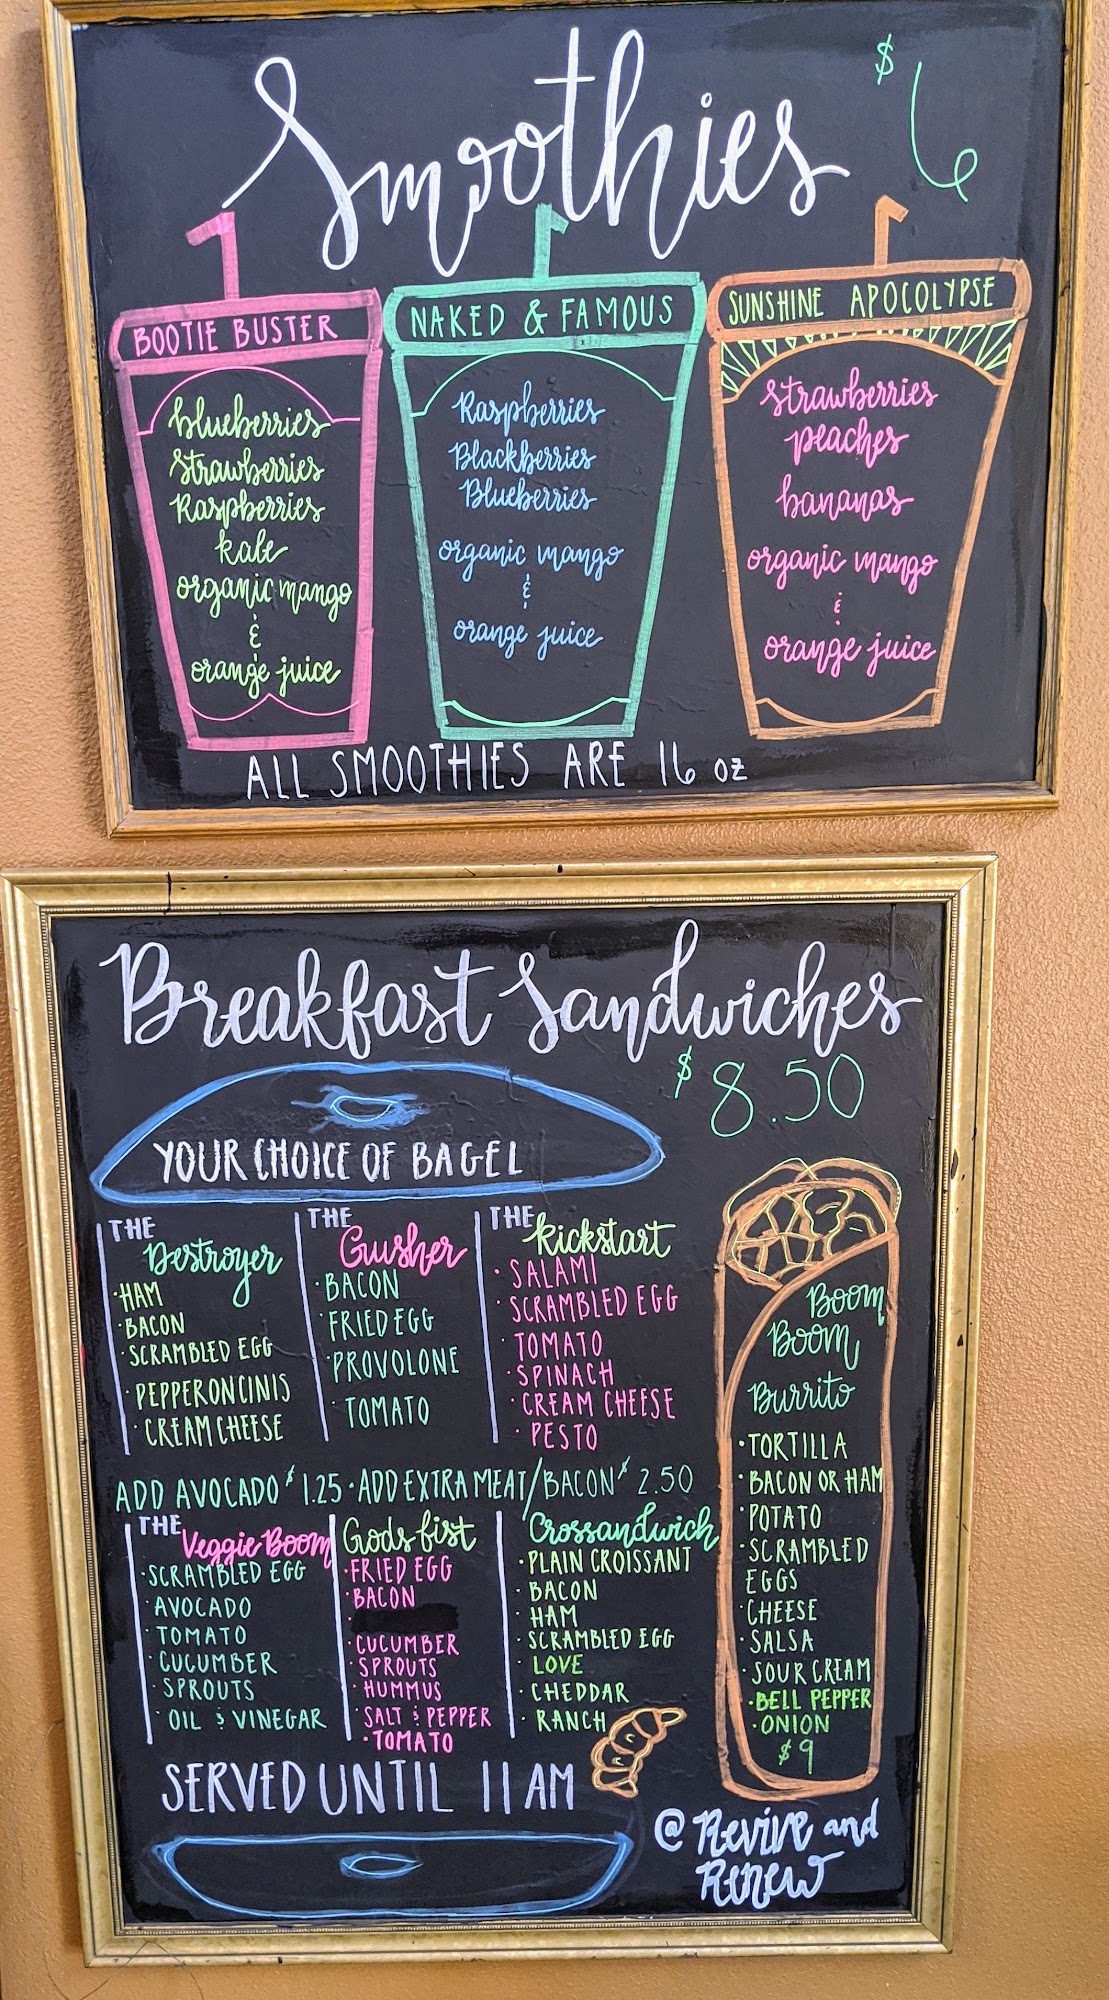 Smoothies
$6
BOOTIE BUSTER
blueberries
Strawberries
Raspberries
kale
organic mango
&
orange juice
NAKED & FAMOUS
Raspberries
Blackberries
Blueberries
organic mango
&
orange juice
SUNSHINE APOCOLYPSE
Strawberries
peaches
bananas
organic mango
&
orange juice
ALL SMOOTHIES ARE 16 oz
Breakfast Sandwiches
$8.50
YOUR CHOICE OF BAGEL
THE
Destroyer
· HAM
· BACON
· SCRAMBLED EGG
· PEPPERONCINIS
· CREAM CHEESE
THE
Gusher
· BACON
· FRIED EGG
· PROVOLONE
· TOMATO
THE
Kickstart
· SALAMI
· SCRAMBLED EGG
· TOMATO
· SPINACH
· CREAM CHEESE
· PESTO
ADD AVOCADO $1.25 · ADD EXTRA MEAT/BACON $2.50
THE
Veggie Boom
· SCRAMBLED EGG
· AVOCADO
· TOMATO
· CUCUMBER
· SPROUTS
· OIL & VINEGAR
Gods fist
· FRIED EGG
· BACON
·
· CUCUMBER
· SPROUTS
· HUMMUS
· SALT & PEPPER
· TOMATO
Crossandwich
· PLAIN CROISSANT
· BACON
· HAM
· SCRAMBLED EGG
· LOVE
· CHEDDAR
· RANCH
Boom
Boom
Burrito
· TORTILLA
· BACON OR HAM
· POTATO
· SCRAMBLED
EGGS
· CHEESE
· SALSA
· SOUR CREAM
· BELL PEPPER
· ONION
$9
SERVED UNTIL 11 AM
@ Revive and
Renew